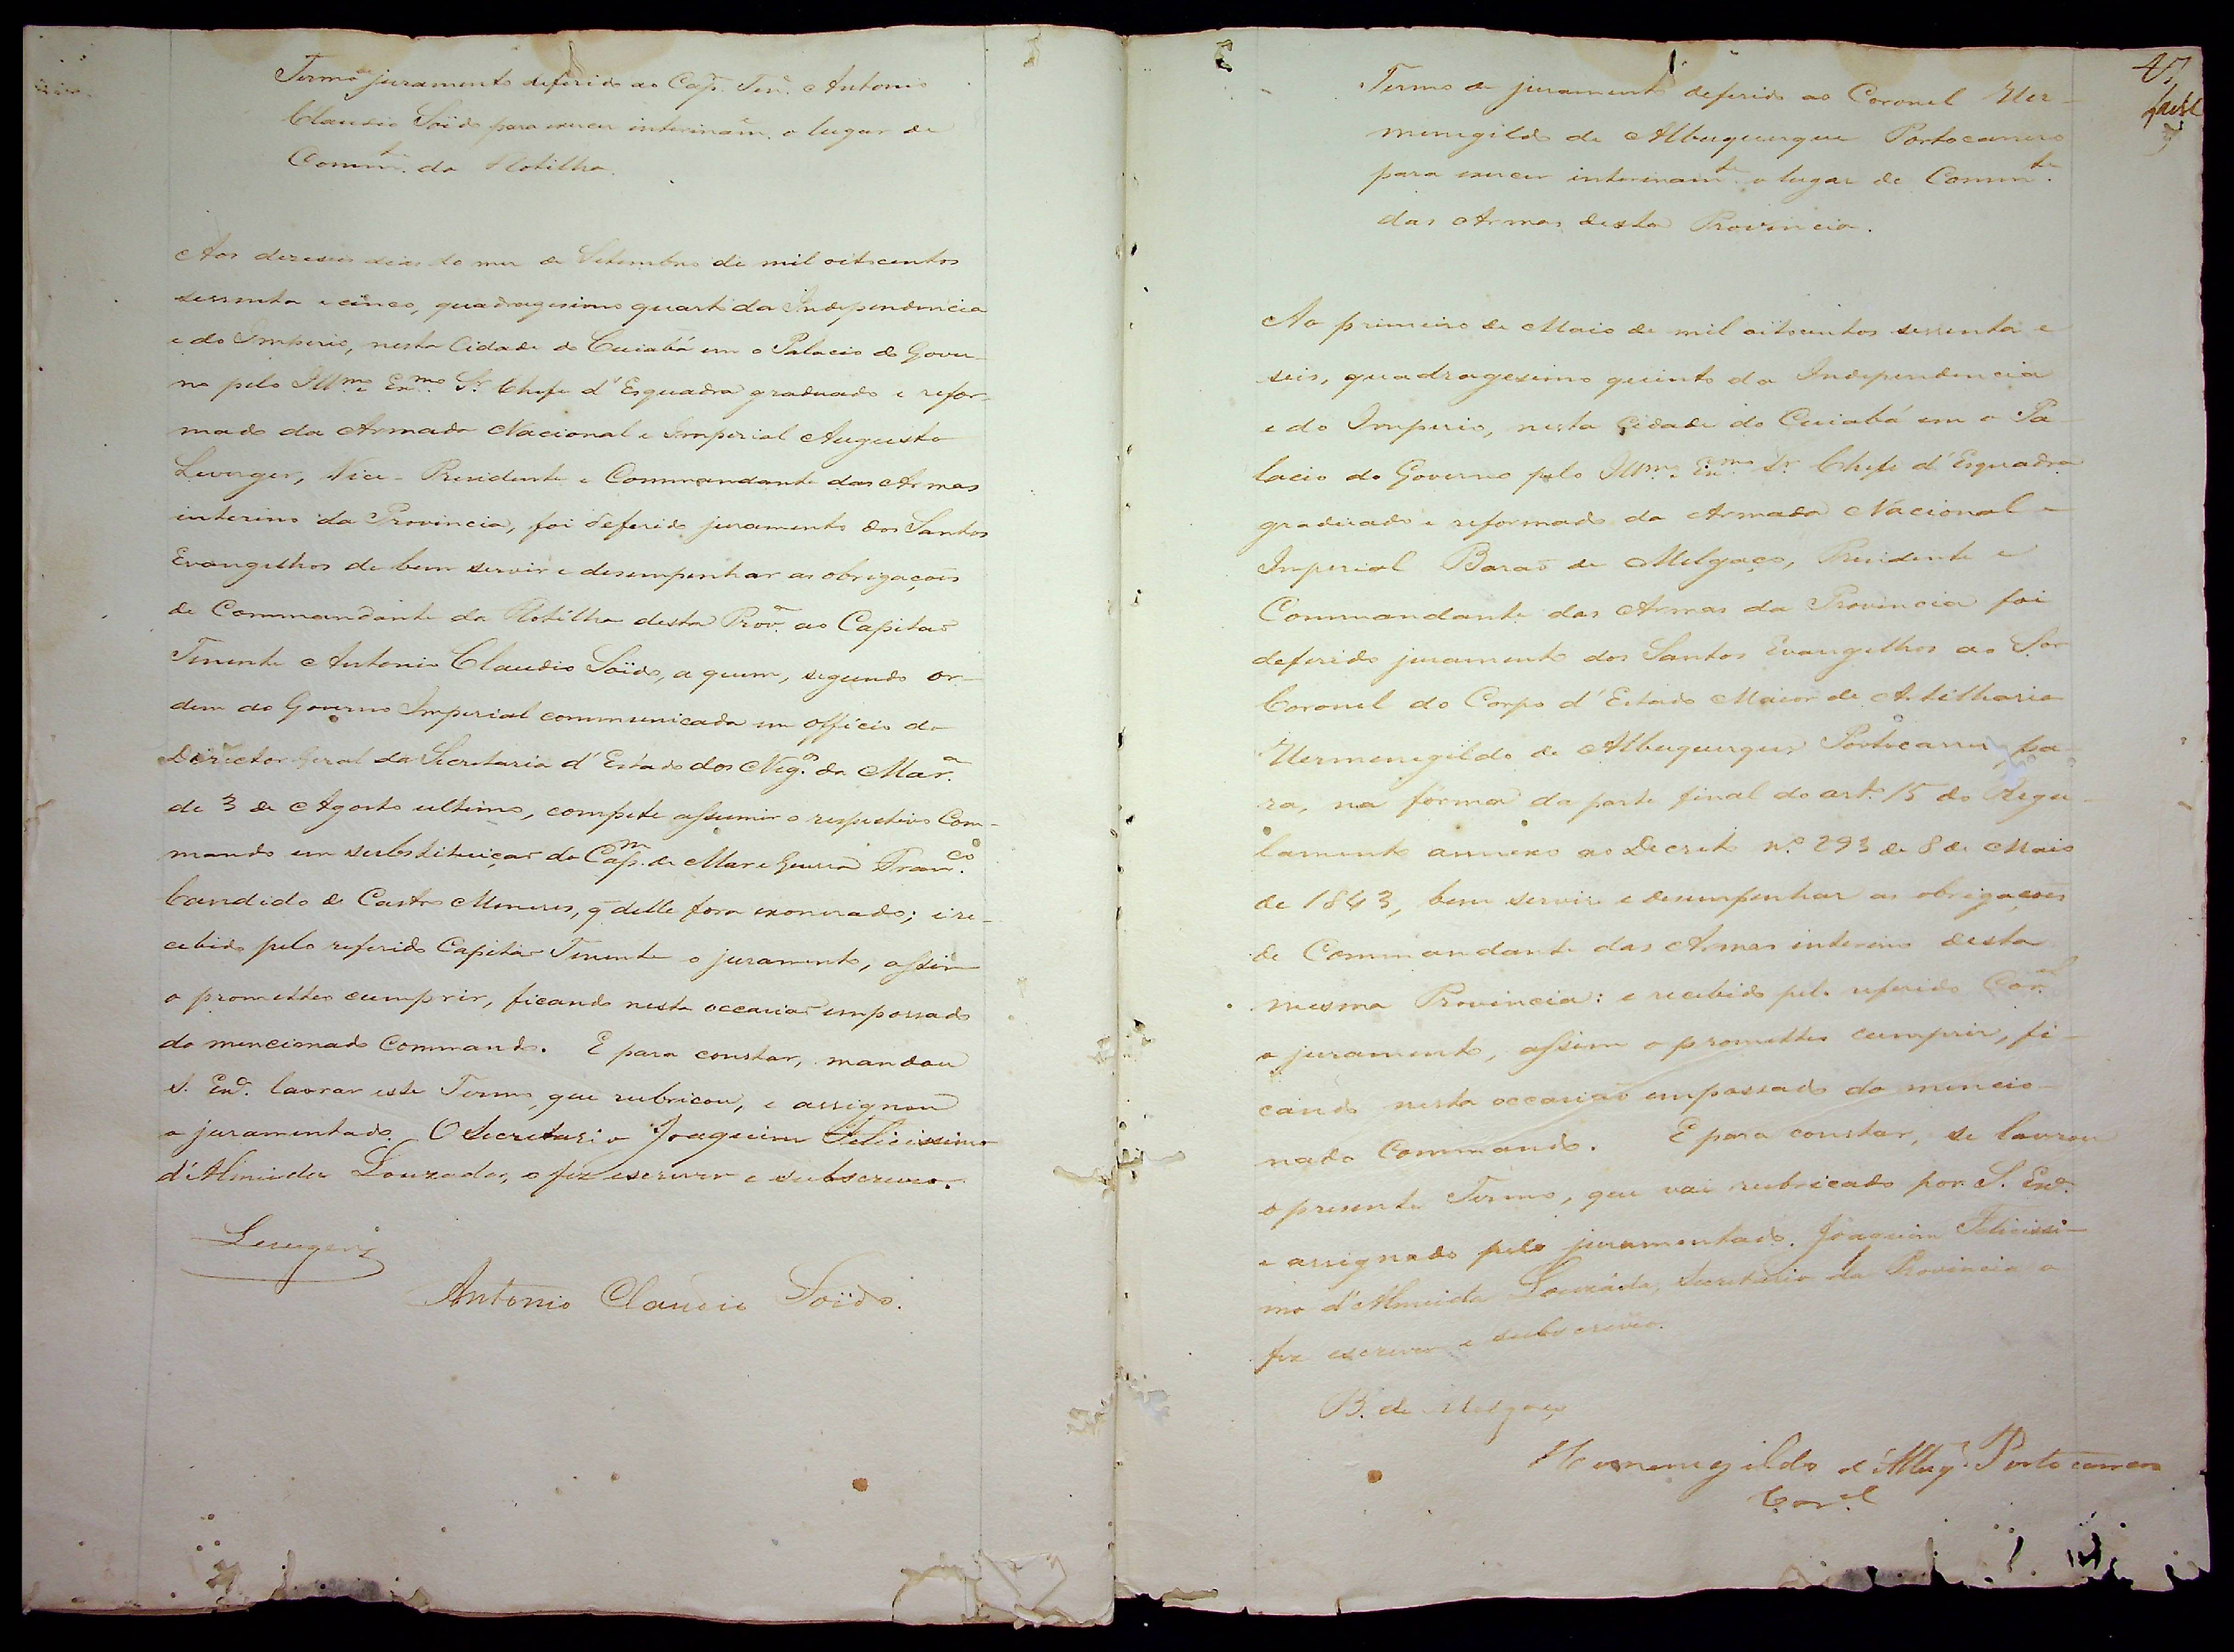 Termo juramento deferido ao Cap.m Ten.e Antonio
Claudio Soïdo para exercer interinam.e o lugar de
Comm.te da Flotilha.
Aos dezeseis dias do mez de Setembro de mil oitocentos
sessenta e cinco, quadragesimo quarto da Independencia
e do Imperio, nesta Cidade do Cuiabá em o Palacio do Gover-
no pelo Ill.mo e Ex.mo Sr. Chefe d'Esquadra graduado e refor-
mado da Armada Nacional e Imperial Augusto
Leverger, Vice-Presidente e Commandante das Armas
interino da Provincia, foi deferido juramento dos Santos
Evangelhos de bem servir e desempenhar as obrigações
de Commandante da Flotilha desta Prov.a ao Capitão
Tenente Antonio Claudio Soïdo, a quem, segundo or-
dem do Governo Imperial communicada em officio do
Director Geral da Secretaria d'Estado dos Neg.os da Mar.a
de 3 de Agosto ultimo, compete assumir o respectivo Com-
mando em substituição do Cap.m de Mar e Guerra Fran.co
Candido de Castro Menezes, q̃ delle fora exonerado; e re-
cebido pelo referido Capitão Tenente o juramento, assim
o prometteo cumprir, ficando nesta occasião empossado
do mencionado Commando. E para constar, mandou
S. Ex.a lavrar este Termo, que rubricou, e assignou
o juramentado. O Secretario Joaquim Felicissimo
d'Almeida Louzada, o fiz escrever e subscrevo.
Leverger
Antonio Claudio Soïdo.
47
Termo de juramento deferido ao Coronel Her-
menegildo de Albuquerque Portocarrero
para exercer interinam.te o lugar de Comm.te
das Armas desta Provincia.
Ao primeiro de Maio de mil oitocentos sessenta e
seis, quadragesimo quinto da Independencia
e do Imperio, nesta Cidade do Cuiabá em o Pa-
lacio do Governo pelo Ill.mo e Ex.mo Sr. Chefe d'Esquadra
graduado e reformado da Armada Nacional e
Imperial Barão de Melgaço, Presidente e
Commandante das Armas da Provincia foi
deferido juramento dos Santos Evangelhos ao Sor
Coronel do Corpo d'Estado Maior de Artilharia
Hermenegildo de Albuquerque Portocarrero, pa-
ra, na fórma da parte final do art.o 15 do Regu-
lamento annexo ao Decreto n.o 293 de 8 de Maio
de 1843, bem servir e desempenhar as obrigações
de Commandante das Armas interino desta
mesma Provincia: e recebido pelo referido Cor.el
o juramento, assim o prometteo cumprir, fi-
cando nesta occasião empossado do mencio-
nado Commando. E para constar, se lavrou
o presente Termo, que vai rubricado por S. Ex.a
e assignado pelo juramentado. Joaquim Felicissi-
mo d'Almeida Louzada, Secretario da Provincia o
fiz escrever e subscrevo.
B. de Melgaço
Hermenegildo d'Albuq.e Portocarrero
Cor.el